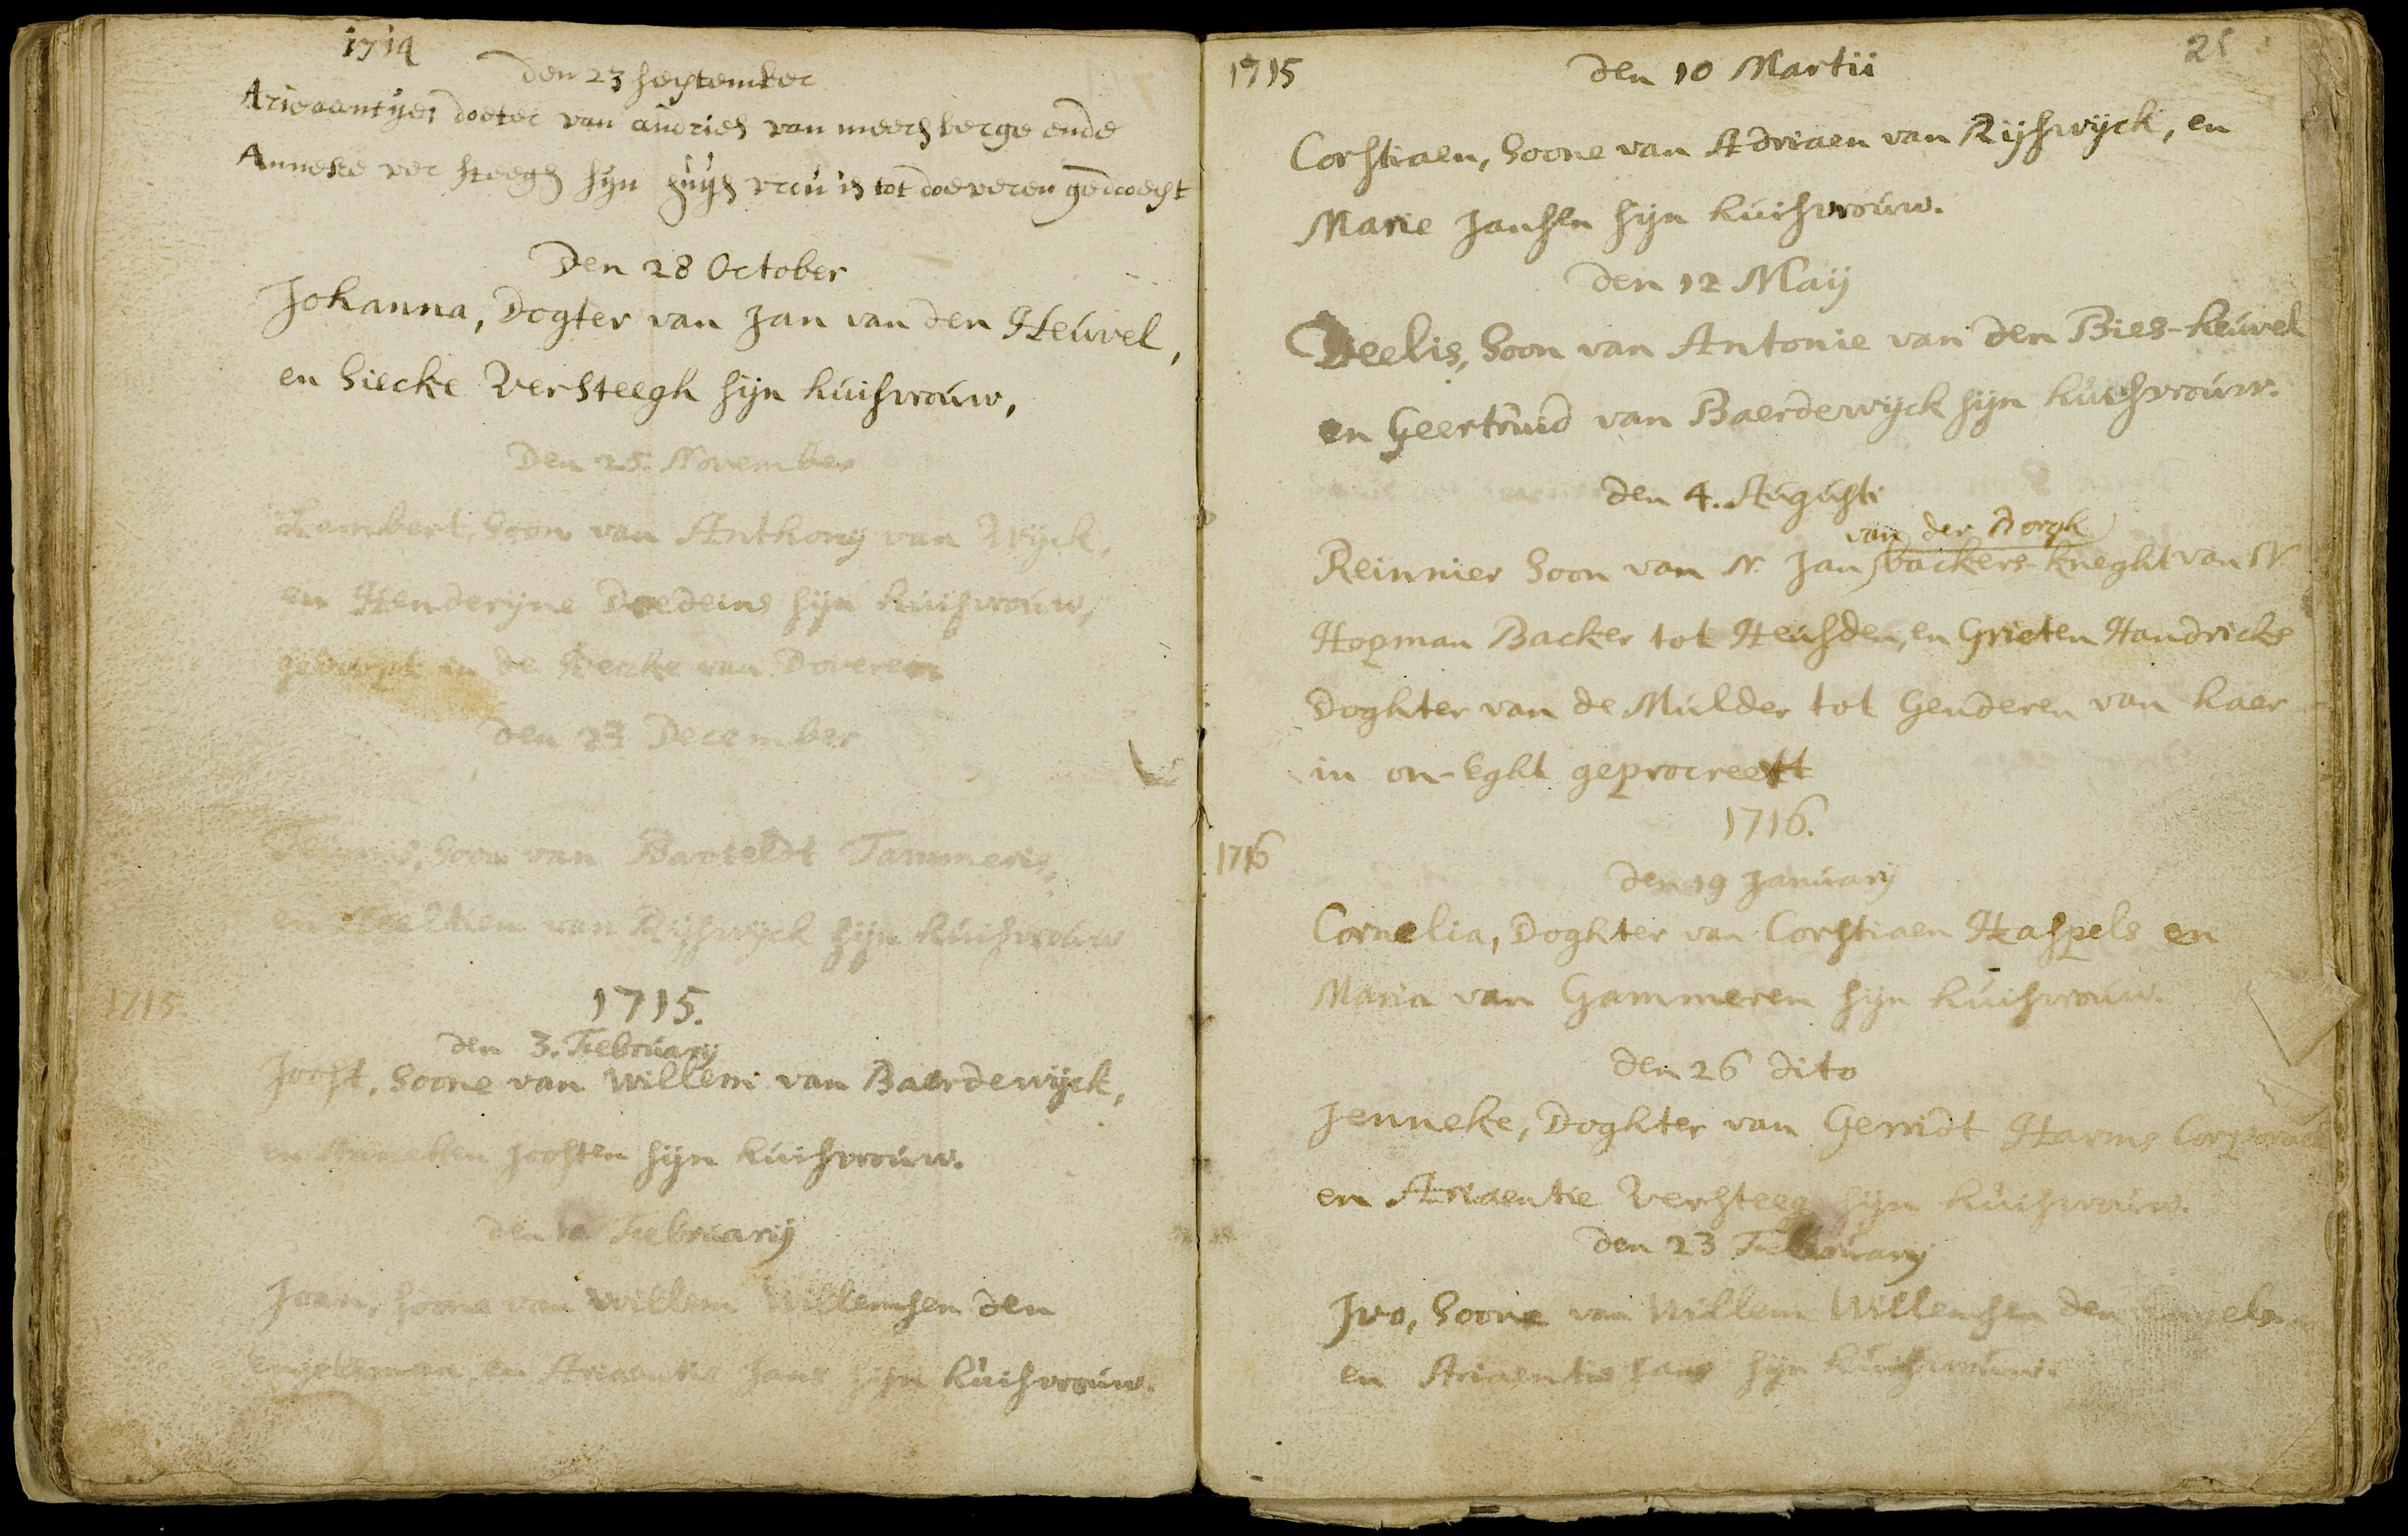 1714
den 23 september
Arieaantije, docter van andries van meersberge ende
Anneke ver steegh sijn huijs vrou is tot doeveren gedooept
Den 28 October
Johanna, Dogter van Jan van den Heuvel,
en Siecke Versteegh sijn huisvrouw,
Den 25 November
Lambert, Soon van Anthonij van Wijck,
en Henderijne Doedeins sijn huisvrouw,
gedoopt in de Kercke van Doveren
den 23 December
Soon van Barteldt Tammeris,
en van Rijswijck sijn huisvrouw
1715.
1715.
den 3. Februarij
Joost, Soone van Willem van Baerdewijck,
en Anneken Joosten sijn huisvrouw.
den Februarij
Jaan, Soone van Willem Willemsen den
engelsman, en Ariaentie Jans sijn huisvrouw.
25
1715
den 10 Martii
Corstiaen, Soone van Adriaen van Rijswijck, en
Marie Jansen sijn huisvrouw.
den 12 Maij
Deelis, Soon van Antonie van den Bies-heuvel
en Geertruid van Baerdewijck sijn huisvrouw.
den 4. Augusti
van der Borgh
Reinnier Soon van N. Jan backers-kneght van N
Hopman Backer tot Heusden, en Grieten Handricks
Doghter van de Mulder tot Genderen van haer
in on-Eght geprocreett
1716.
1716
den 19 Januarij
Cornelia, Doghter van Corstiaen Haspels en
Maria van Gammeren sijn huisvrouw.
den 26 dito
Jenneke, Doghter van Gerridt Harms Corporael
en Ariaentie Versteeg sijn huisvrouw.
den 23 Februarij
Ivo, Soone van Willem Willemsen den Engels
en Ariaentie Jans sijn huisvrouw.